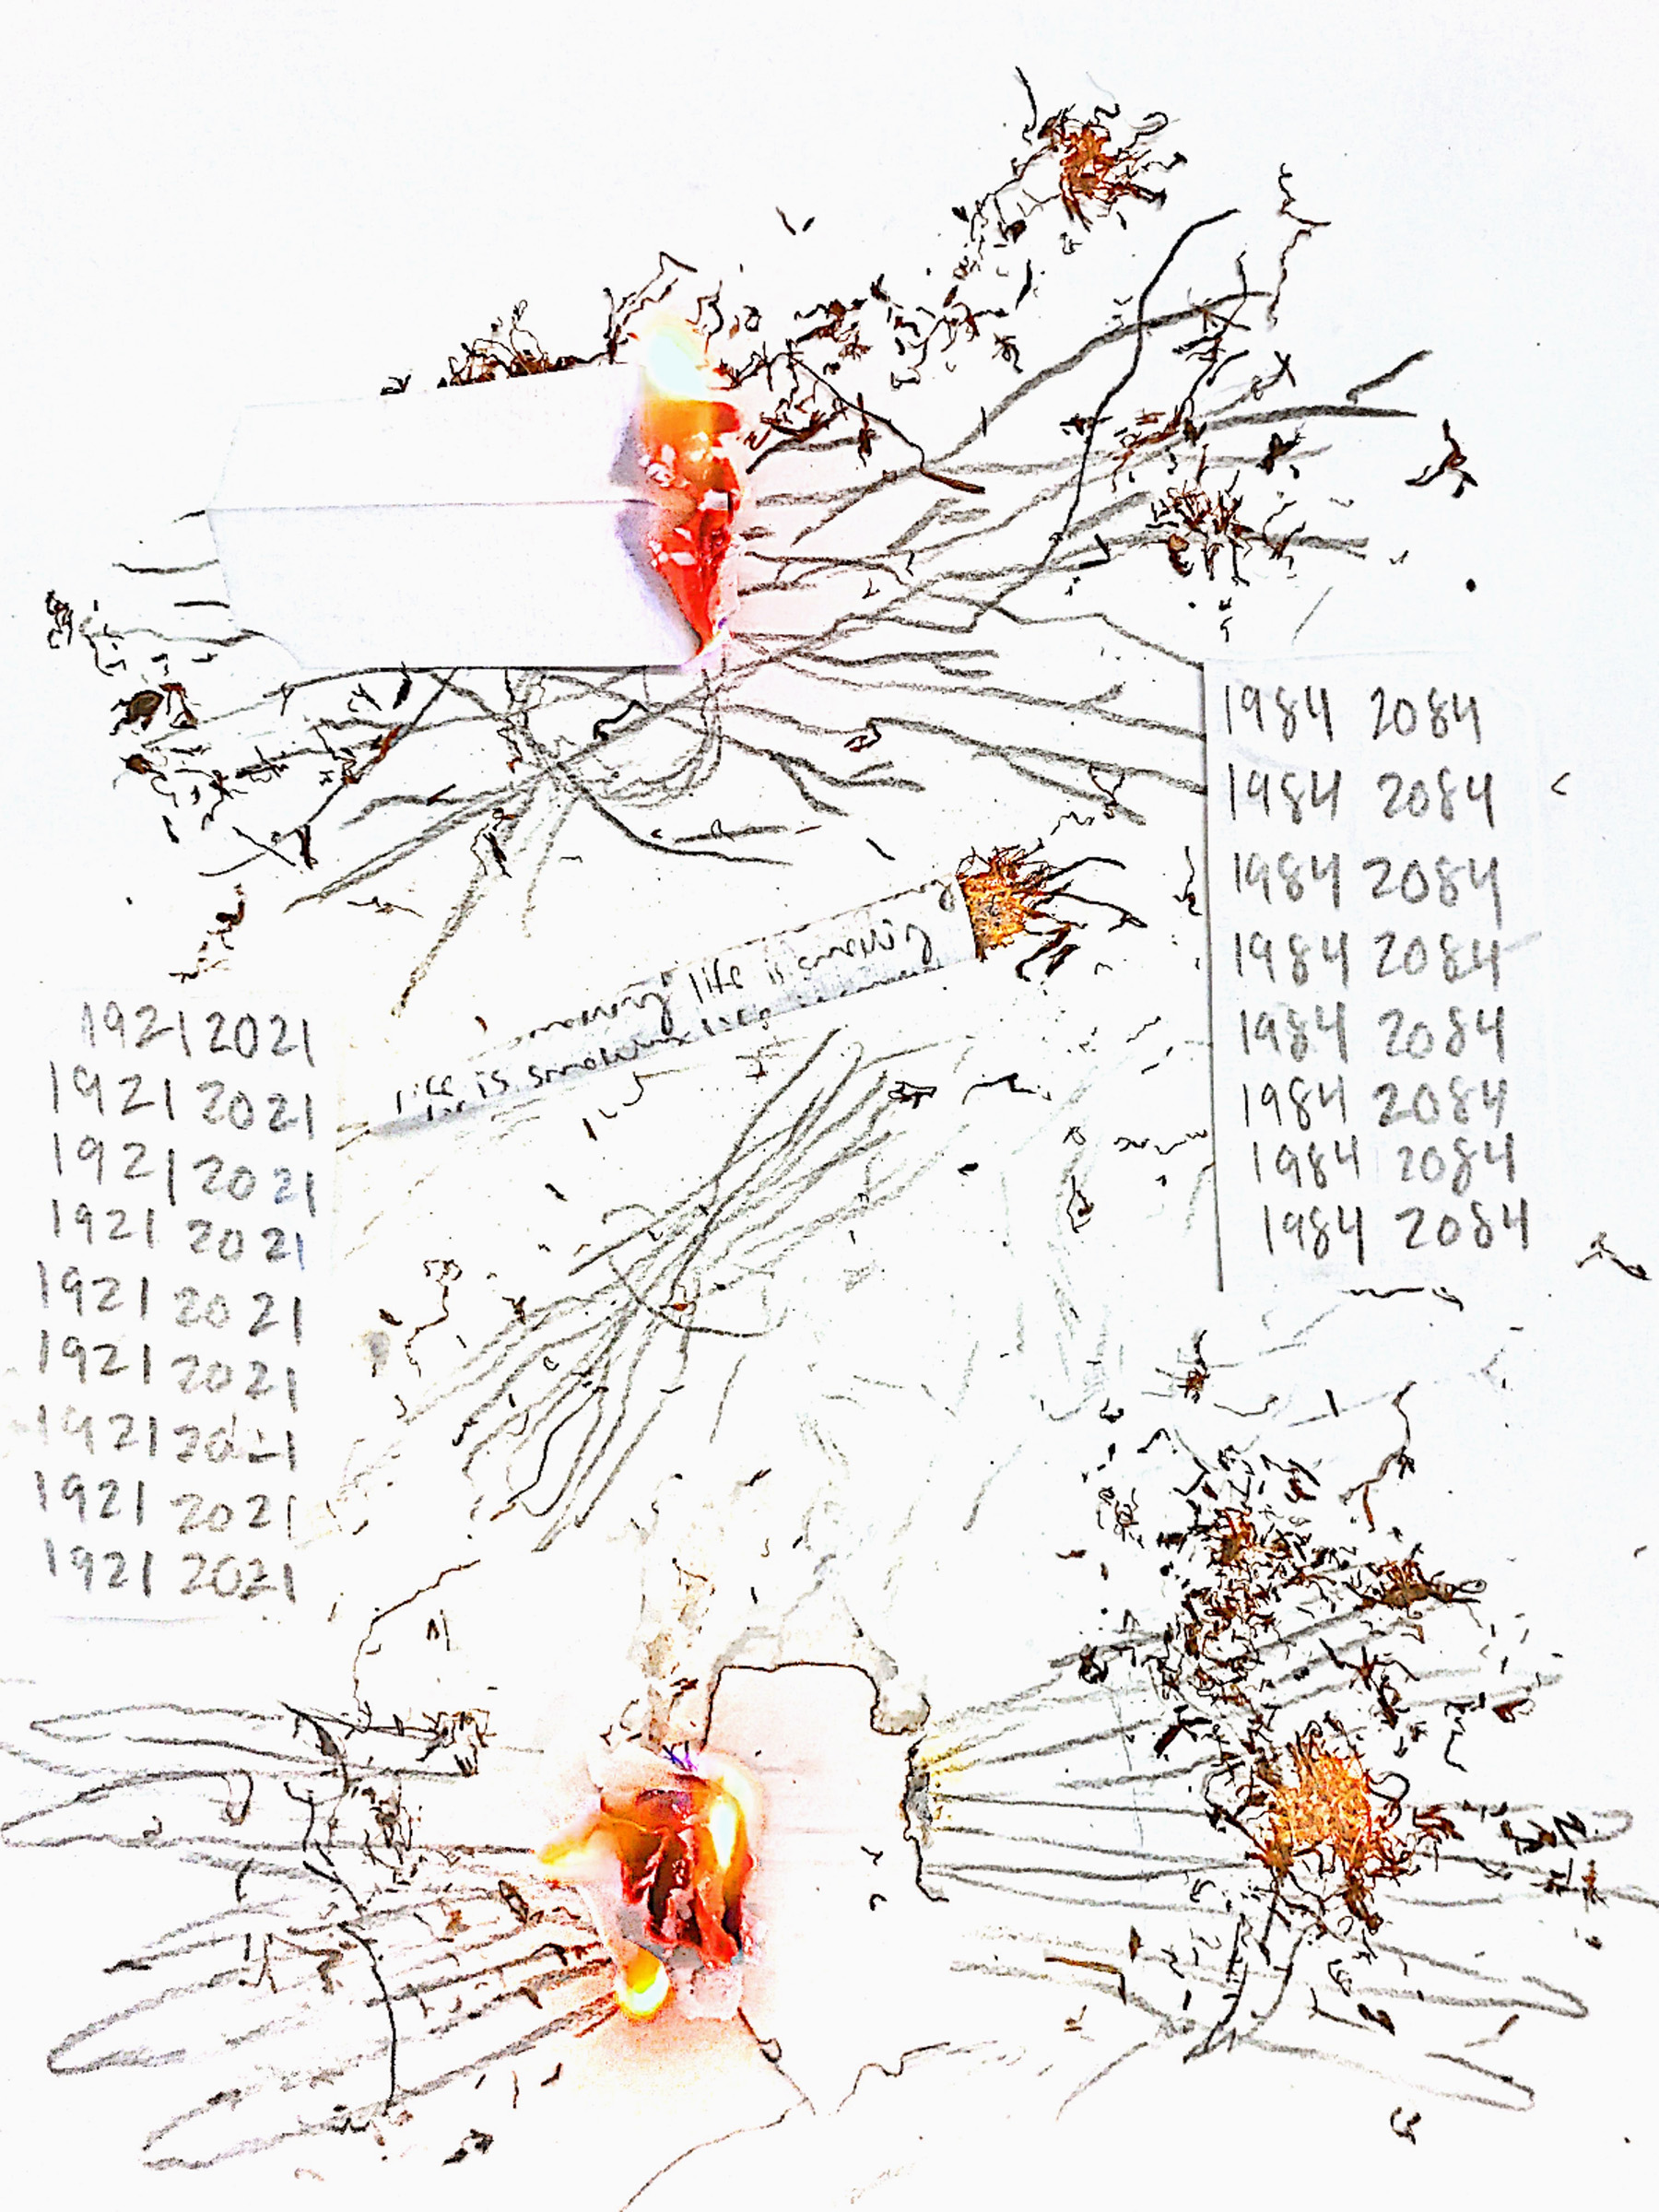 1984 2084
1984 2084
1984 2084
1984 2084
1984 2084
1984 2084
1984 2084
1984 2084
smoking life is smoking
life is smoking life is
1921 2021
1921 2021
1921 2021
1921 2021
1921 2021
1921 2021
1921 2021
1921 2021
1921 2021